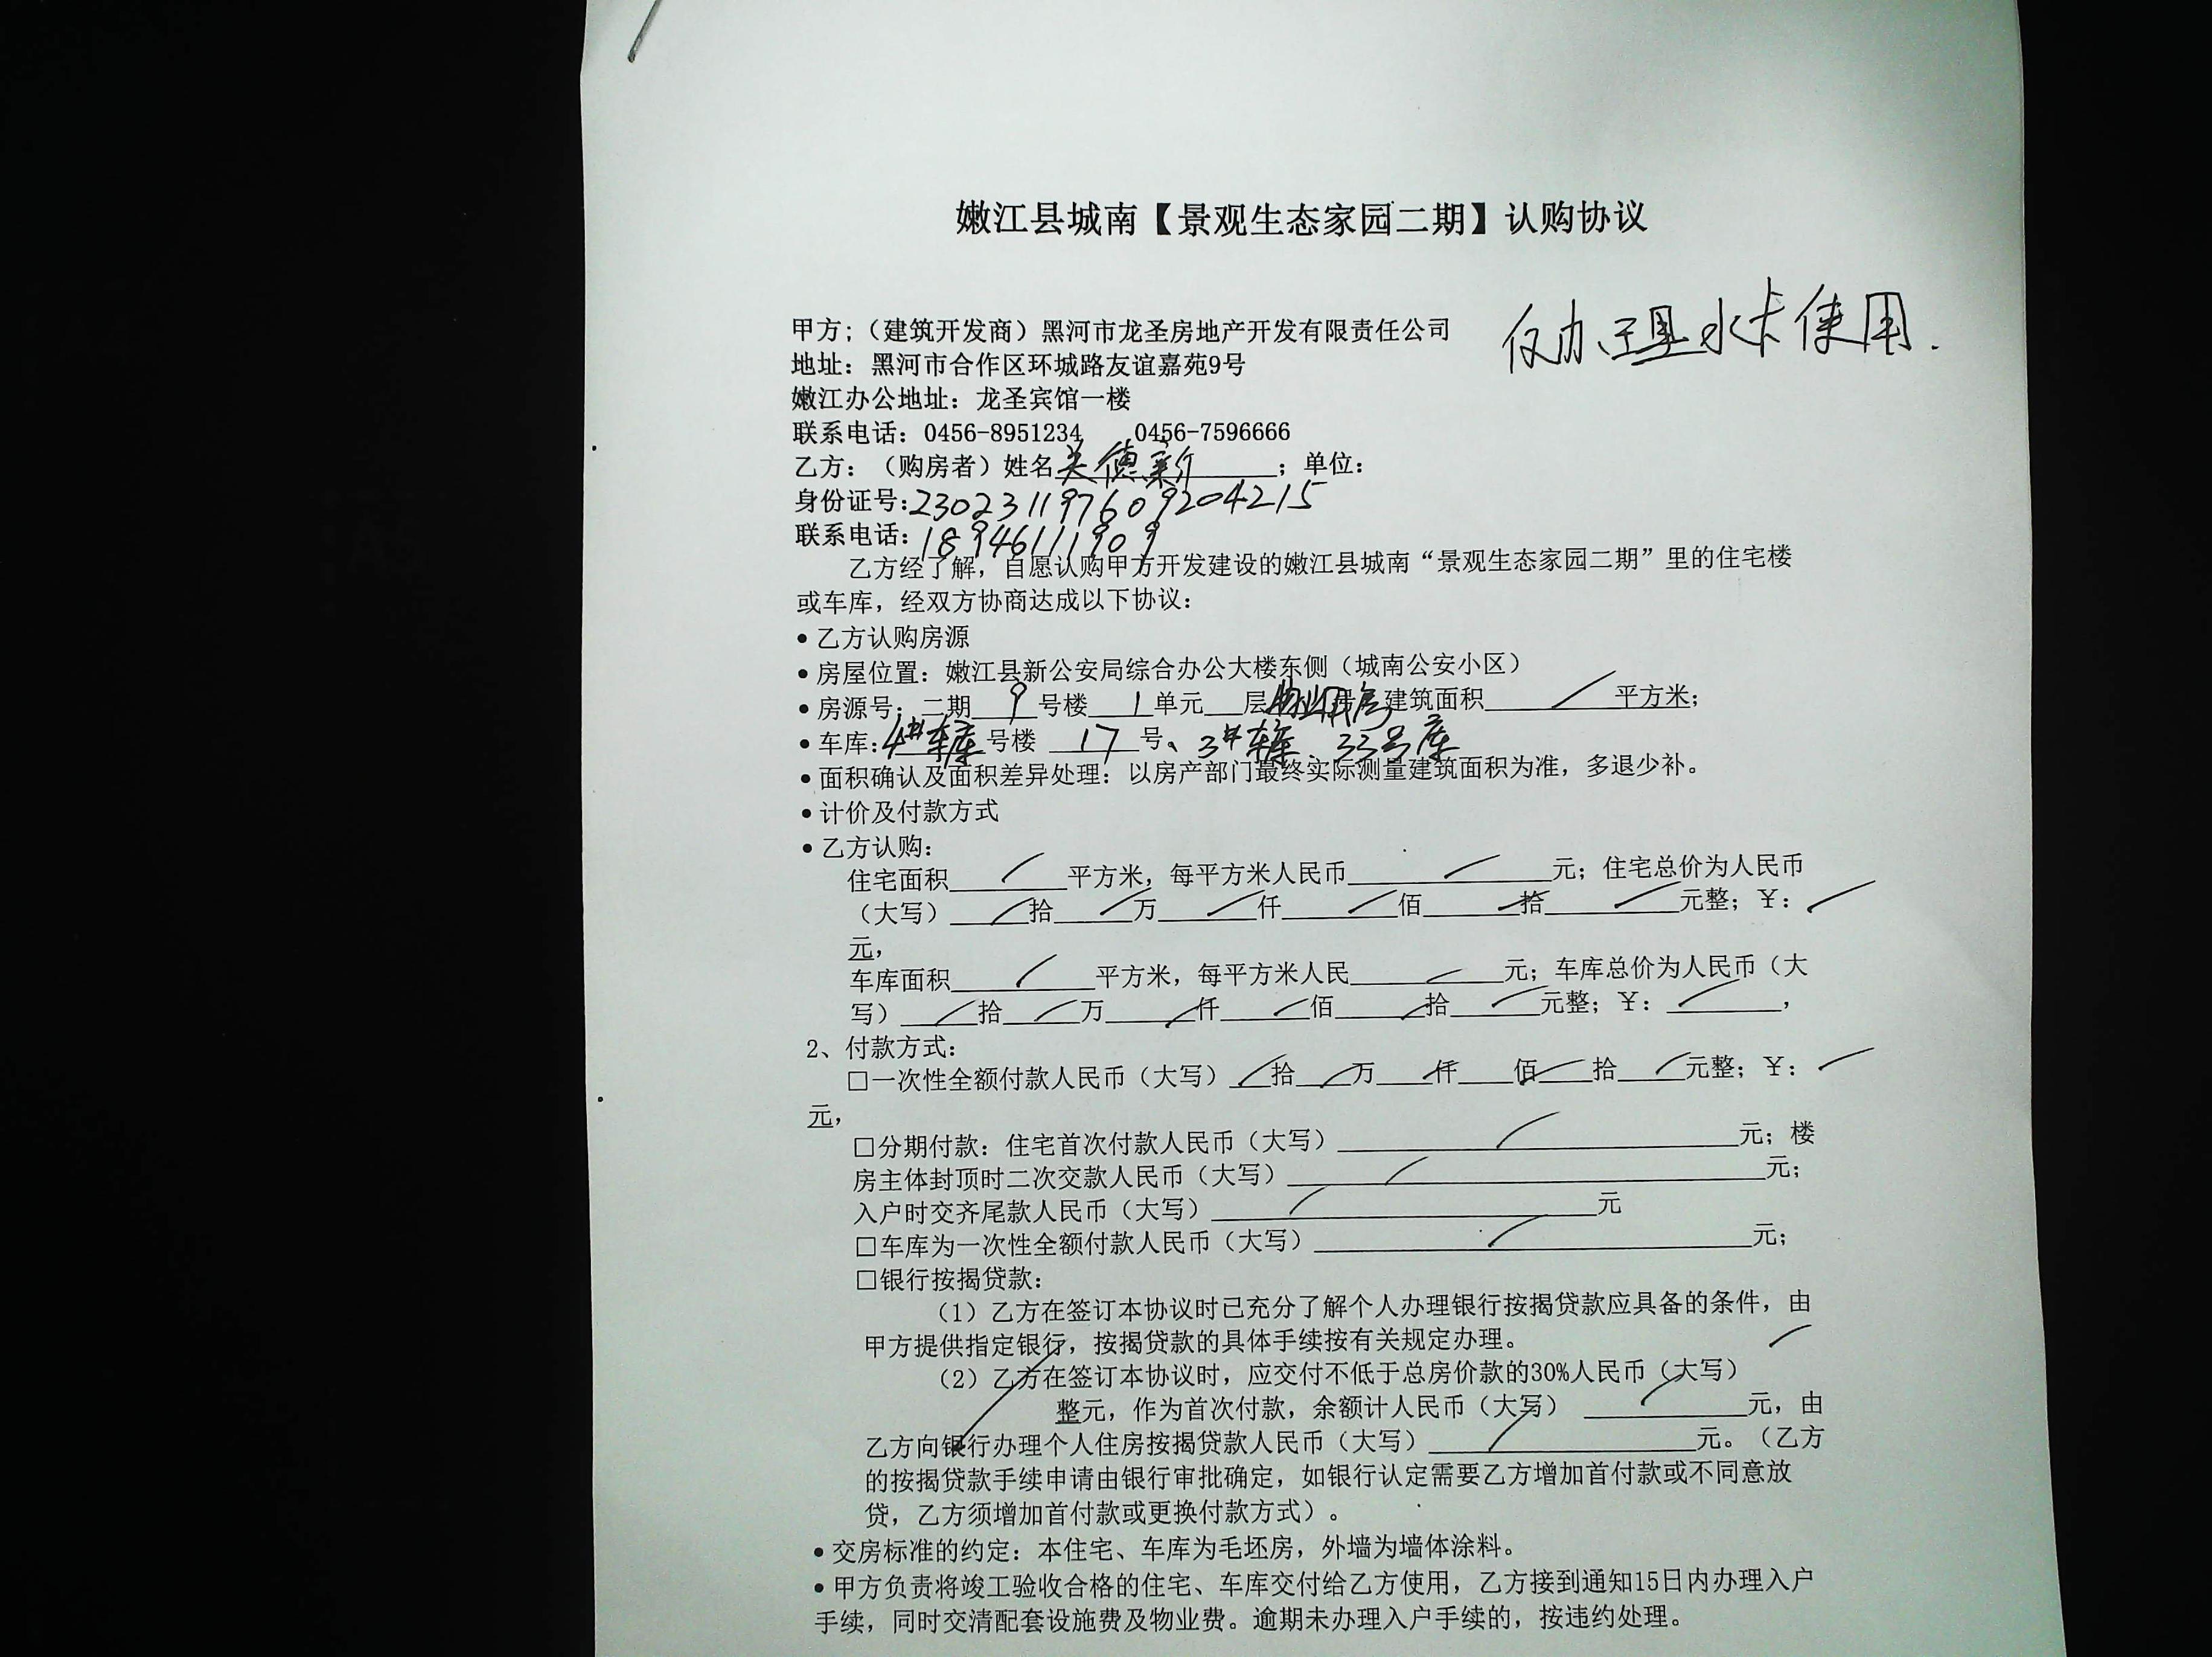 嫩江县城南【景观生态家园二期】认购协议
仅办理水卡使用.
甲方;（建筑开发商）黑河市龙圣房地产开发有限责任公司
地址：黑河市合作区环城路友谊嘉苑9号
嫩江办公地址：龙圣宾馆一楼
联系电话：0456-8951234 0456-7596666
乙方：（购房者）姓名关德新；单位：
身份证号:230231197609204215
联系电话：18946111909
乙方经了解，自愿认购甲方开发建设的嫩江县城南“景观生态家园二期”里的住宅楼
或车库，经双方协商达成以下协议：
•乙方认购房源
•房屋位置：嫩江县新公安局综合办公大楼东侧（城南公安小区）
•房源号：二期 9 号楼 1 单元 层 物业用房 建筑面积 / 平方米；
•车库：4#车库 号楼 17 号、3#车库、33号库
•面积确认及面积差异处理：以房产部门最终实际测量建筑面积为准，多退少补。
•计价及付款方式
•乙方认购：
住宅面积 / 平方米，每平方米人民币 / 元；住宅总价为人民币
（大写） / 拾 / 万 / 仟 / 佰 / 拾 / 元整；￥： /
元，
车库面积 / 平方米，每平方米人民 / 元；车库总价为人民币（大
写） / 拾 / 万 / 仟 / 佰 / 拾 / 元整；￥： / ，
2、付款方式：
□一次性全额付款人民币（大写） / 拾 / 万 / 仟 / 佰 / 拾 / 元整；￥： /
元，
□分期付款：住宅首次付款人民币（大写） / 元；楼
房主体封顶时二次交款人民币（大写） / 元；
入户时交齐尾款人民币（大写） / 元
□车库为一次性全额付款人民币（大写） / 元；
□银行按揭贷款：
（1）乙方在签订本协议时已充分了解个人办理银行按揭贷款应具备的条件，由
甲方提供指定银行，按揭贷款的具体手续按有关规定办理。
（2）乙方在签订本协议时，应交付不低于总房价款的30%人民币（大写） /
整元，作为首次付款，余额计人民币（大写） / 元，由
乙方向银行办理个人住房按揭贷款人民币（大写） / 元。（乙方
的按揭贷款手续申请由银行审批确定，如银行认定需要乙方增加首付款或不同意放
贷，乙方须增加首付款或更换付款方式）。
•交房标准的约定：本住宅、车库为毛坯房，外墙为墙体涂料。
•甲方负责将竣工验收合格的住宅、车库交付给乙方使用，乙方接到通知15日内办理入户
手续，同时交清配套设施费及物业费。逾期未办理入户手续的，按违约处理。